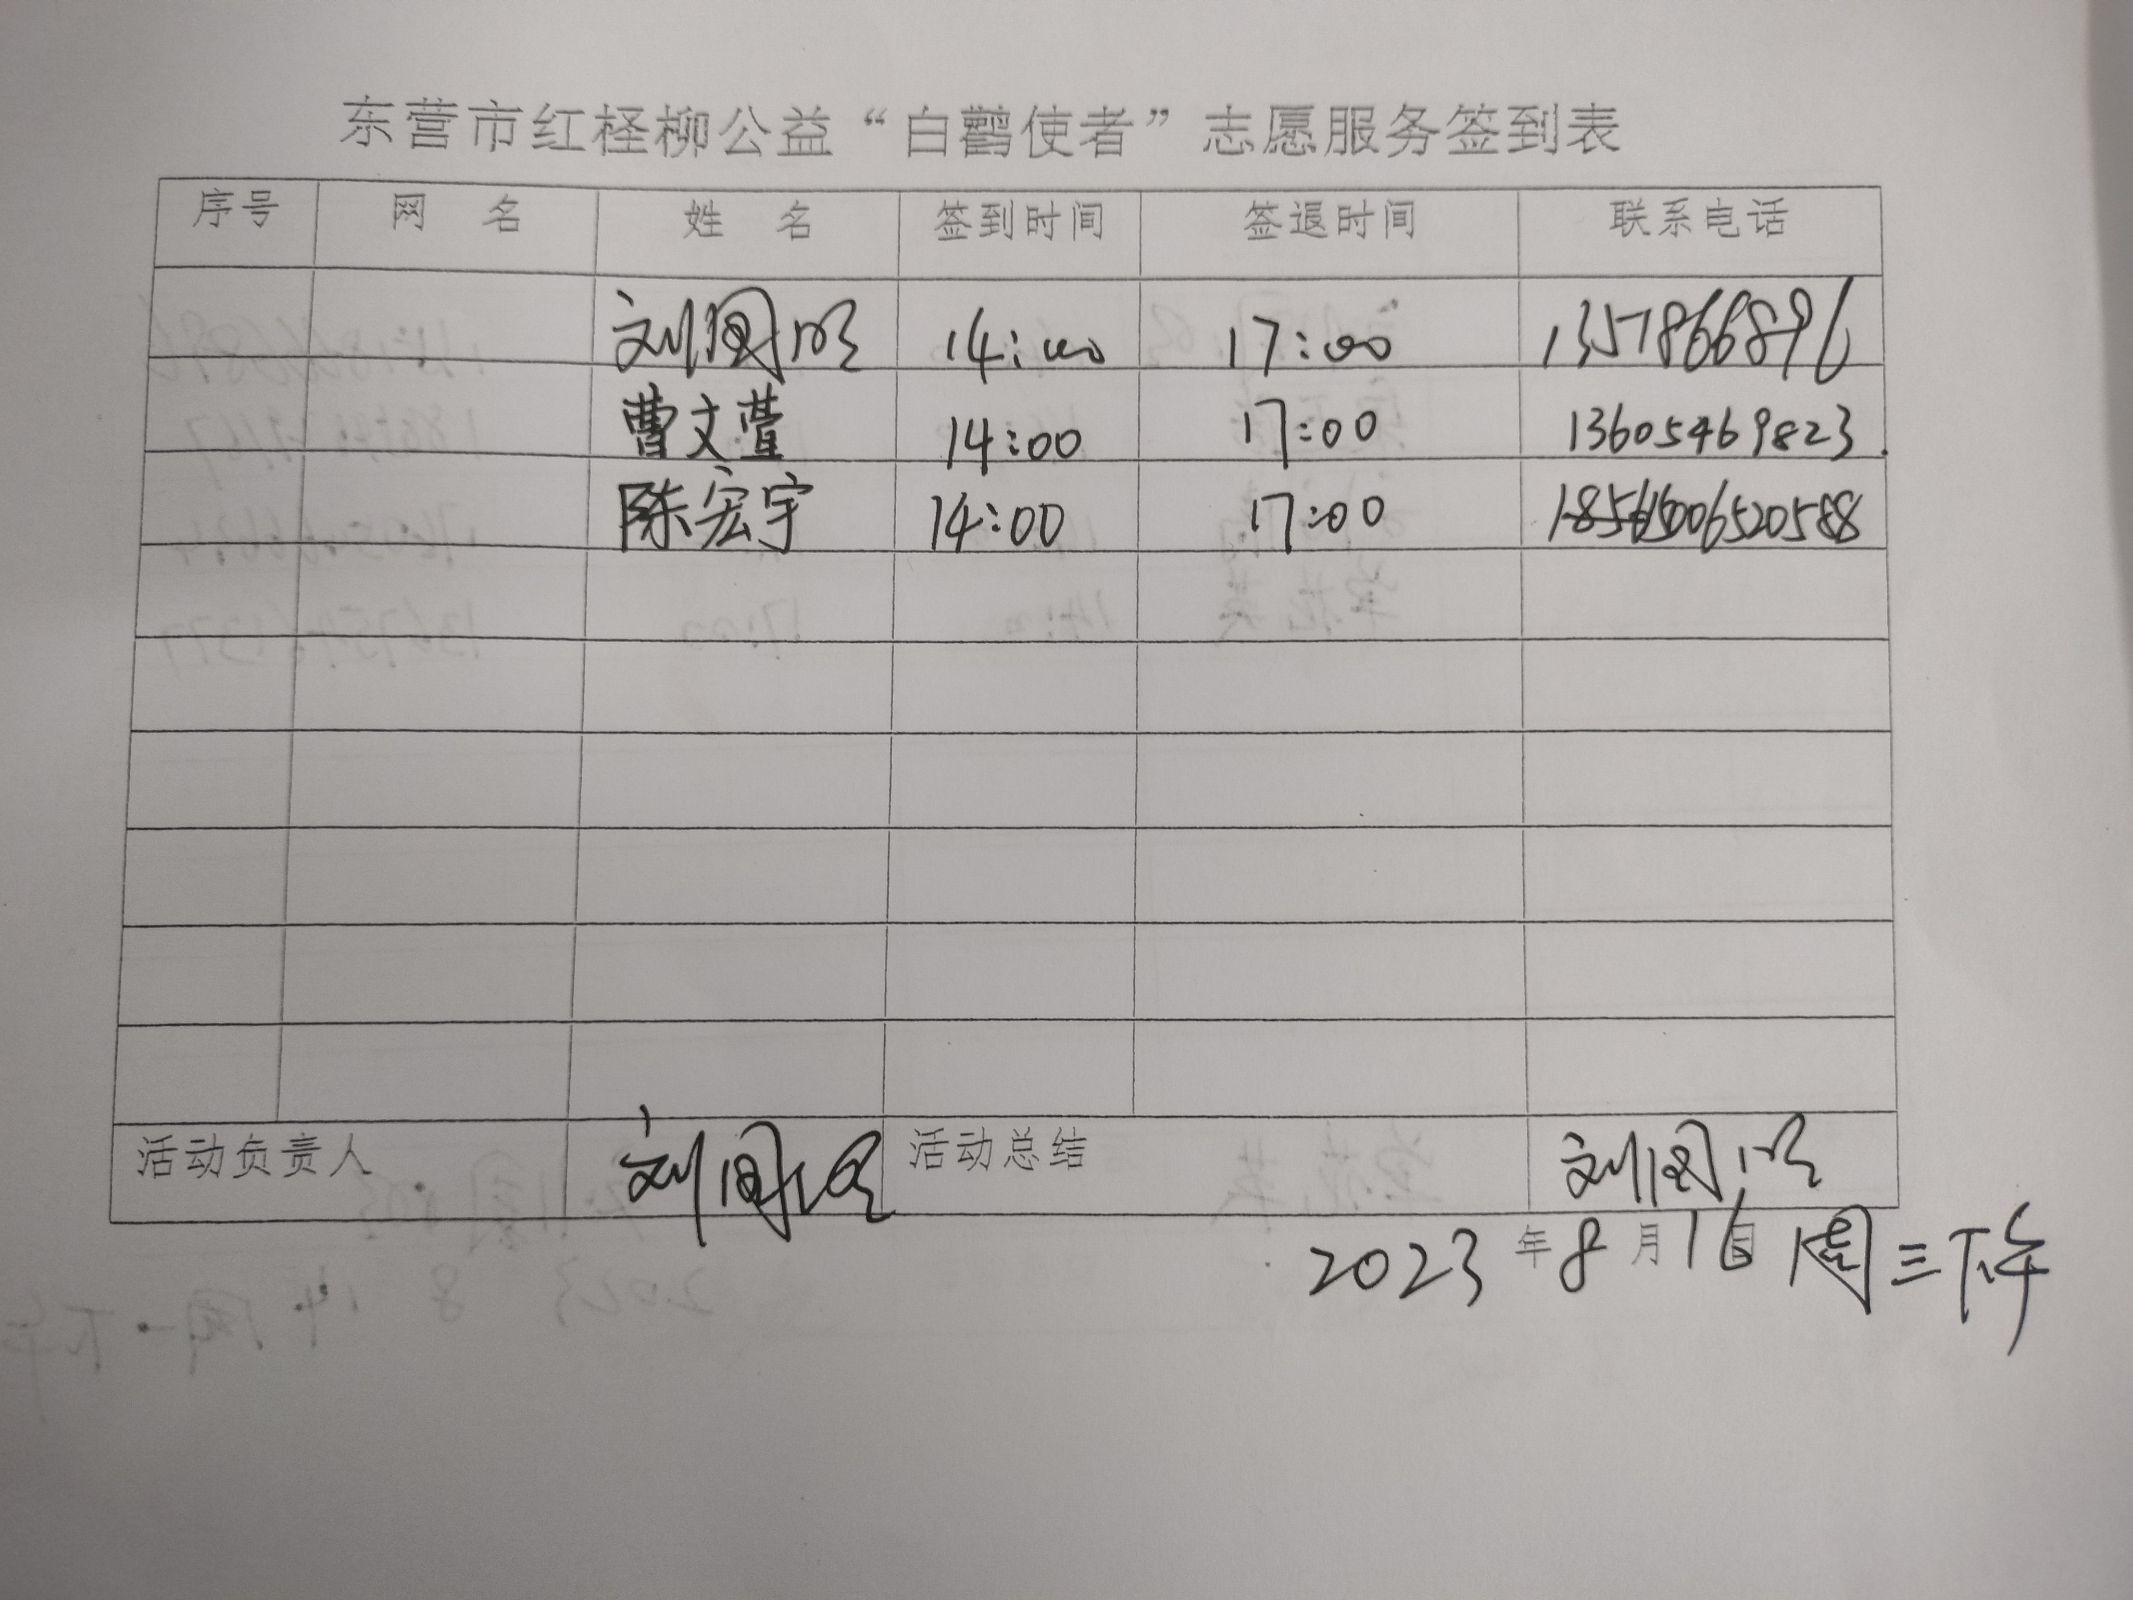 东营市红柽柳公益“白鹳使者”志愿服务签到表
序号 网 名 姓 名 签到时间 签退时间 联系电话
刘国明 14:00 17:00
曹文萱 14:00 17:00 13605469823
陈宏宇 14:00 17:00
活动负责人 刘国明 活动总结 刘国明
2023年8月16日 周三下午